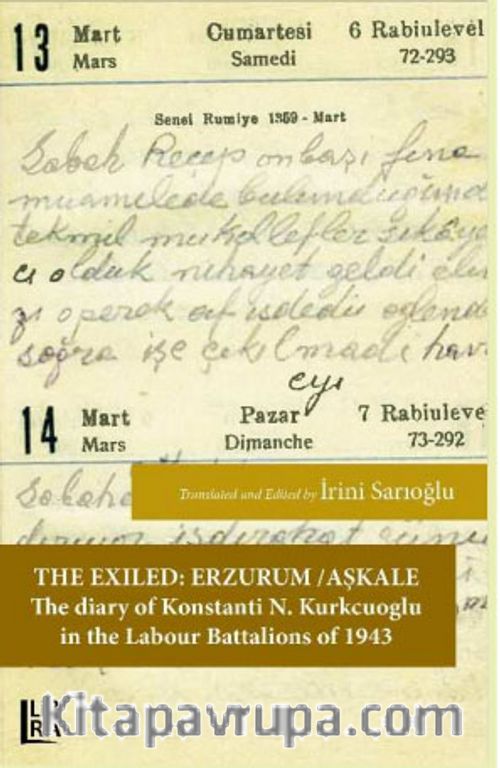 13 Mart Cumartesi 6 Rabiulevel
Mars Samedi 72-293
Senei Rumiye 1359 - Mart
Sabah Recep onbaşı fena
muamelede bulunduğund
tekmil mükellefler şikâye
cı olduk nihayet geldi eli
zı operek af isdedi oglend
soğra işe çıkılmadı hav
eyı
14 Mart Pazar 7 Rabiuleve
Mars Dimanche 73-292
Sabah
Translated and Edited by İrini Sarıoğlu
THE EXILED: ERZURUM /AŞKALE
The diary of Konstanti N. Kurkcuoglu
in the Labour Battalions of 1943
LIBRA
Kitapavrupa.com